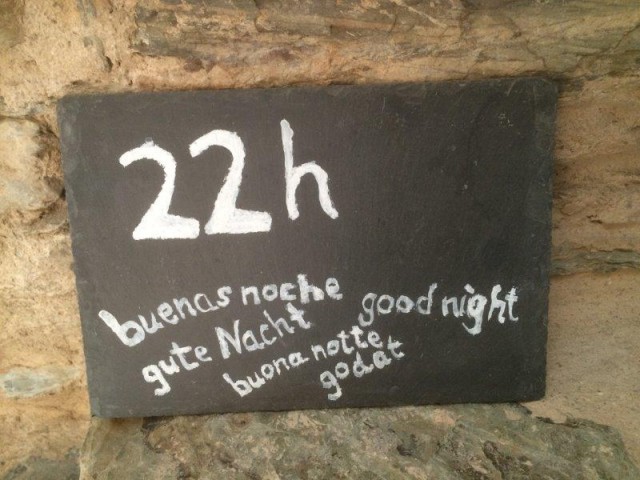 22h
buenas noche
good night
gute Nacht
buona notte
godat